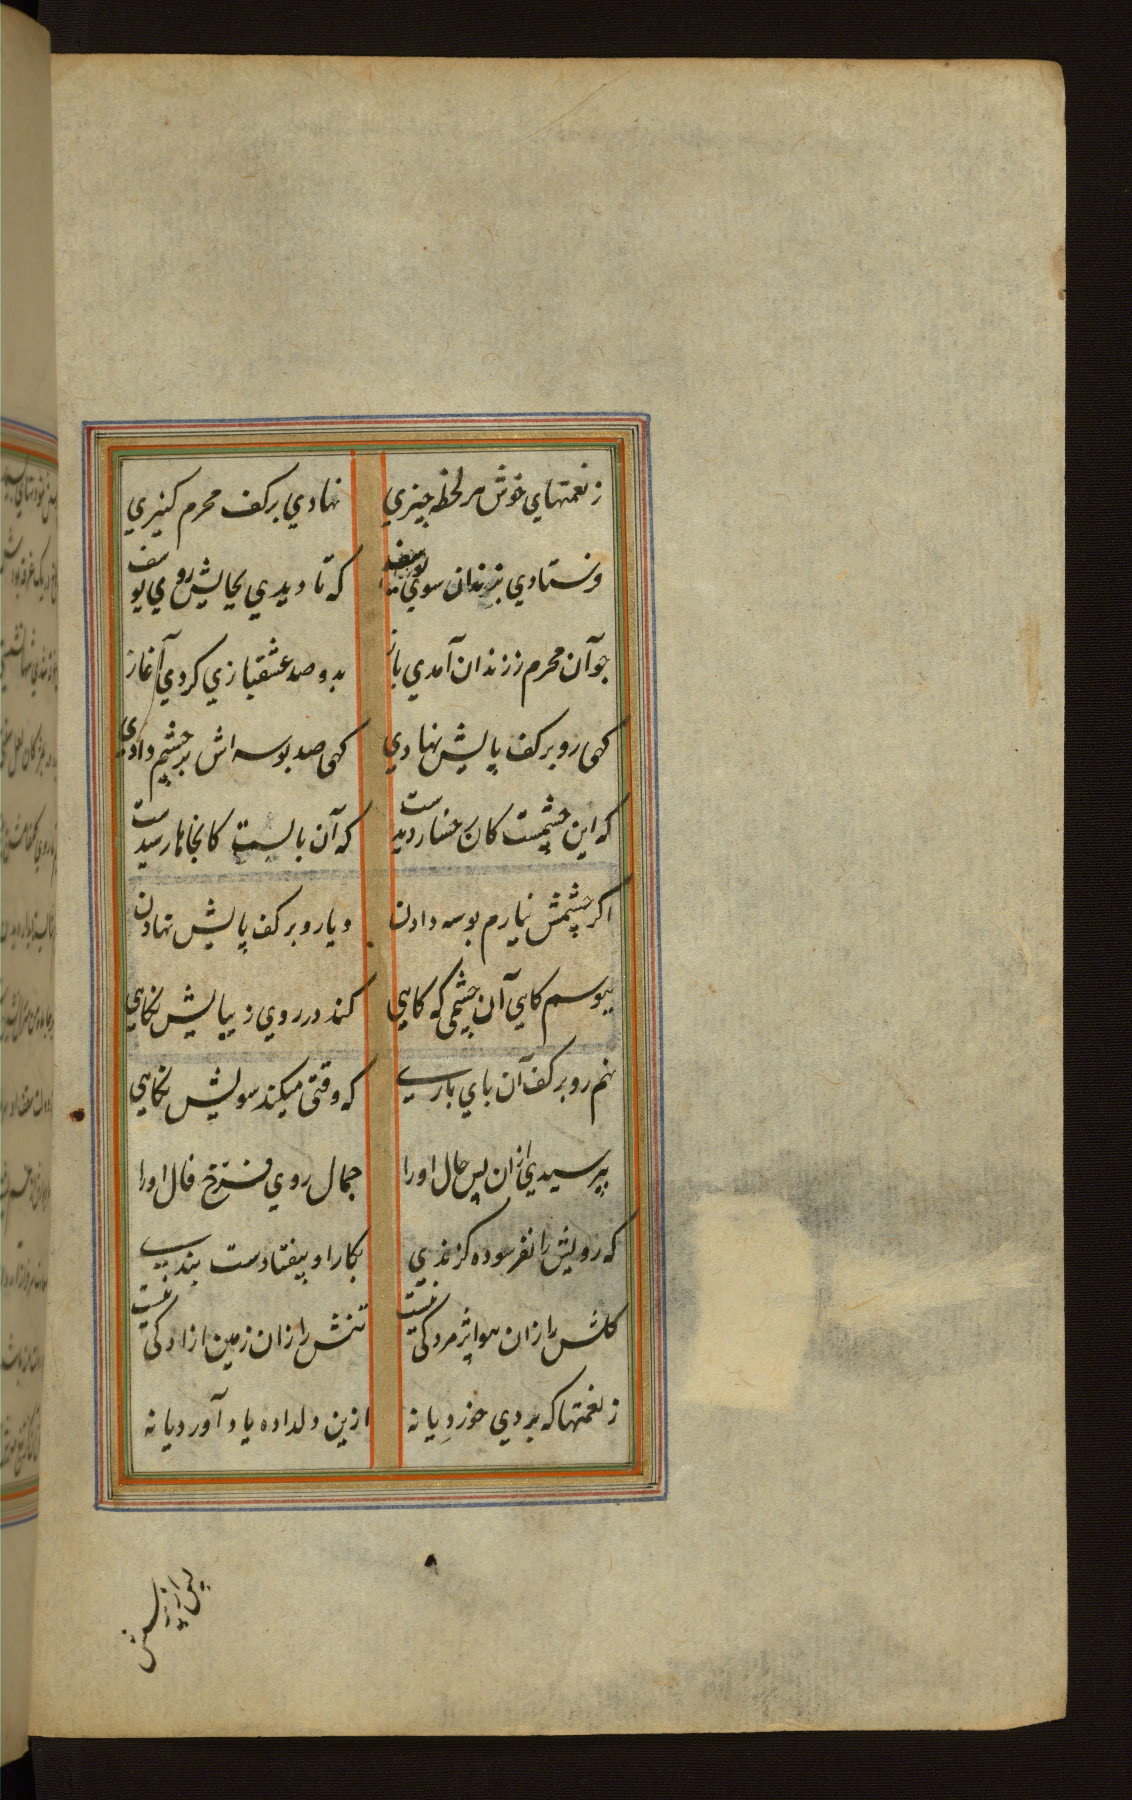 ز نعمتهای خوش هر لحظه چیزی نهادی بر کف محرم کنیزی
فرستادی بزندان سوی یوسف که تا دیدی بجایش روی یوسف
چو آن محرم ز زندان آمدی باز بدو صد عشقبازی کردی آغاز
کهی رو بر کف پایش نهادی کهی صد بوسه اش بر چشم دادی
که این چشمیست کان رخسار دیدست که آن پائیست کانجاها رسیدست
اکر چشمش نیارم بوسه دادن و یا رو بر کف پایش نهادن
ببوسم کاهی آن چشمی که کاهی کند در روی زیبایش نکاهی
نهم رو بر کف آن پای باری که وقتی میکند سویش نکاهی
بپرسیدی از آن پس حال او را جمال روی فرخ فال او را
که رویش را نفرسوده کزندی بکار او بیفتادست بندی
کلش را زان هوا پژمردکی نیست تنش را زان زمین آزردکی نیست
ز نعمتها که بردی خورد یا نه ازین دلداده یاد آورد یا نه
۹
پس از پرسش